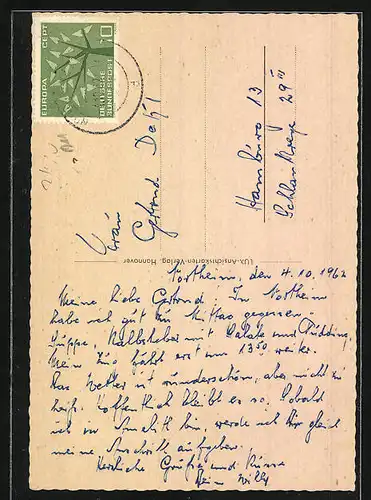 EUROPA CEPT
10
DEUTSCHE BUNDESPOST
Frau
Gertrud Dehl
Hamburg 13
Schlankreye 29 III
LUX-Ansichtskarten-Verlag Hannover
Northeim, den 4.10.1962
Meine liebe Gertrud. In Northeim
habe ich gut zu Mittag gegessen.
Suppe, Kalbsleber mit Salate und Pudding.
Mein Zug fährt erst um 13 50 weiter.
Das Wetter ist wunderschön, aber nicht zu
heiß. Hoffentlich bleibt es so. Sobald
ich in bin, werde ich Dir gleich
meine Anschrift aufgeben.
Herzliche Grüße und Küsse
Dein Willy